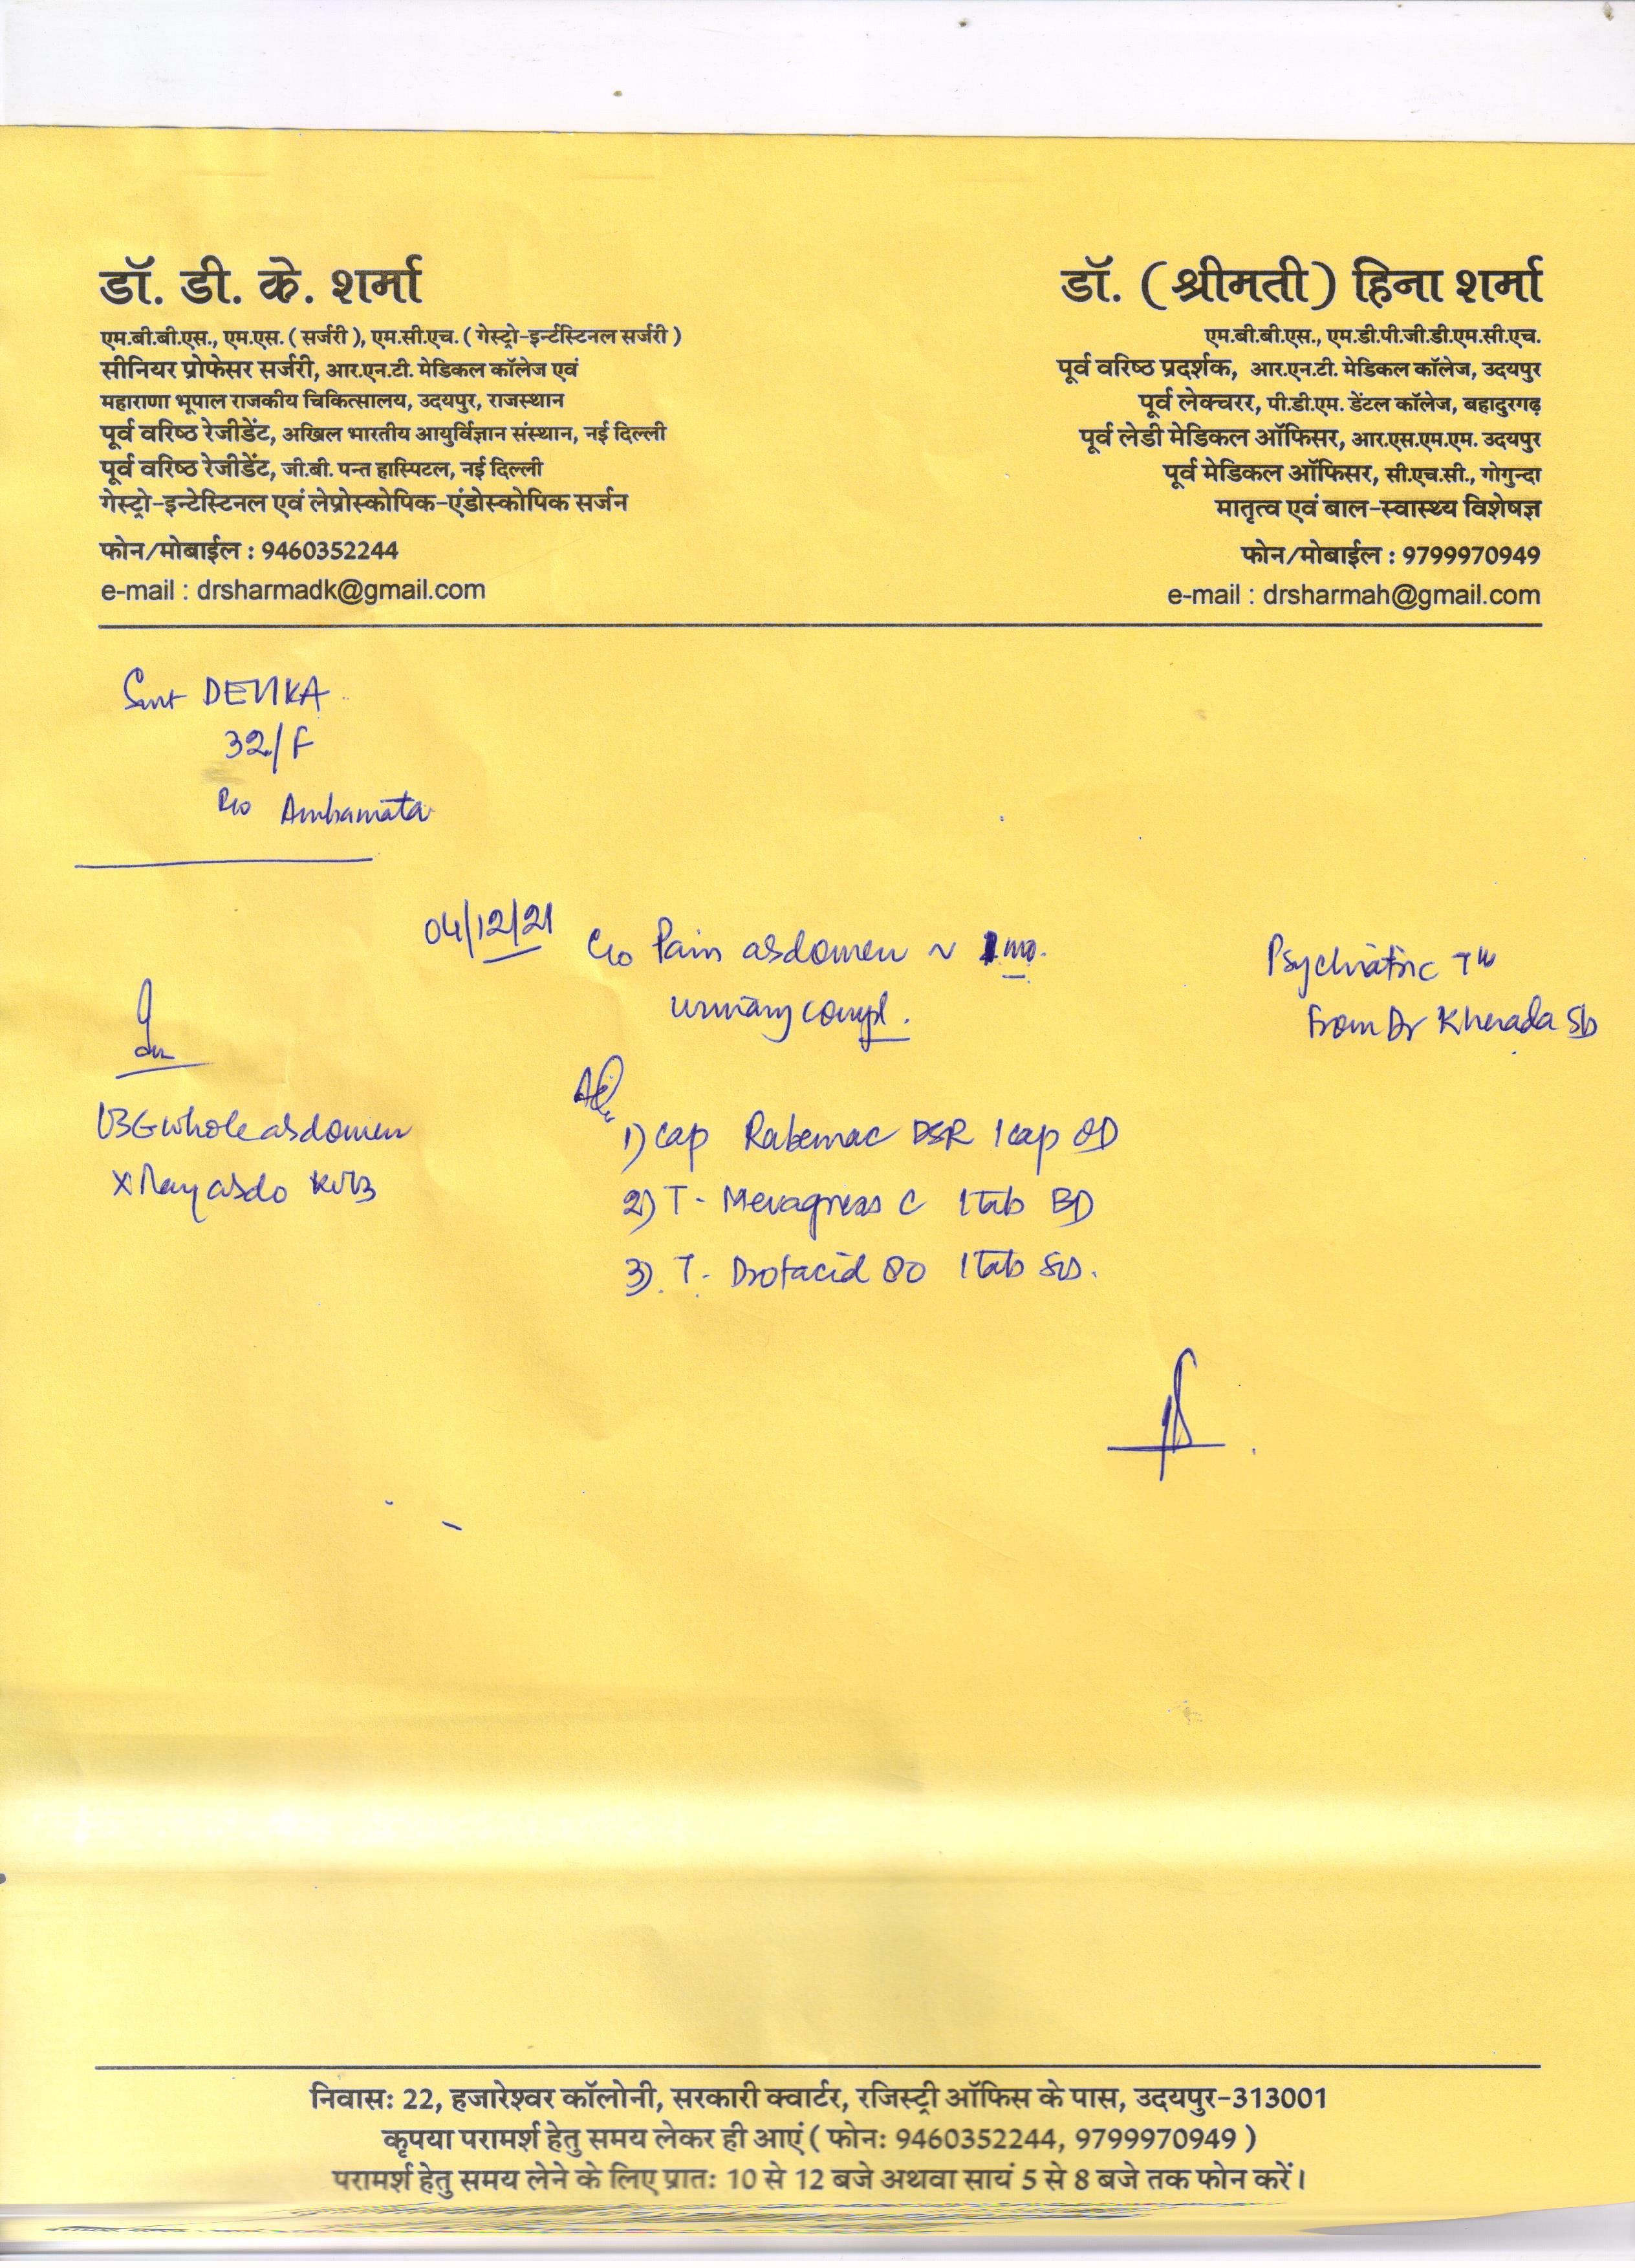 डॉ. डी. के. शर्मा
एम.बी.बी.एस., एम.एस. ( सर्जरी ), एम.सी.एच. ( गेस्ट्रो-इन्टेस्टिनल सर्जरी )
सीनियर प्रोफेसर सर्जरी, आर.एन.टी. मेडिकल कॉलेज एवं
महाराणा भूपाल राजकीय चिकित्सालय, उदयपुर, राजस्थान
पूर्व वरिष्ठ रेजीडेंट, अखिल भारतीय आयुर्विज्ञान संस्थान, नई दिल्ली
पूर्व वरिष्ठ रेजीडेंट, जी.बी. पन्त हास्पिटल, नई दिल्ली
गेस्ट्रो-इन्टेस्टिनल एवं लेप्रोस्कोपिक-एंडोस्कोपिक सर्जन
फोन/मोबाईल : 9460352244
e-mail : drsharmadk@gmail.com
डॉ. ( श्रीमती ) हिना शर्मा
एम.बी.बी.एस., एम.डी.पी.जी.डी.एम.सी.एच.
पूर्व वरिष्ठ प्रदर्शक, आर.एन.टी. मेडिकल कॉलेज, उदयपुर
पूर्व लेक्चरर, पी.डी.एम. डेंटल कॉलेज, बहादुरगढ़
पूर्व लेडी मेडिकल ऑफिसर, आर.एस.एम.एम. उदयपुर
पूर्व मेडिकल ऑफिसर, सी.एच.सी., गोगुन्दा
मातृत्व एवं बाल-स्वास्थ्य विशेषज्ञ
फोन/मोबाईल : 9799970949
e-mail : drsharmah@gmail.com
Smt
32/F
R/o Ambamata
04/12/21
C/o Pain abdomen ~ 1 mo.
urinary compl.
Psychiatric
From Dr Kherada Sb
Adv
USG whole abdomen
X Ray abdo KUB
1) Cap Rabemac DSR 1 cap OD
2) T- C 1 tab BD
3) T- Drotacid 80 1 tab
निवास: 22, हजारेश्वर कॉलोनी, सरकारी क्वार्टर, रजिस्ट्री ऑफिस के पास, उदयपुर-313001
कृपया परामर्श हेतु समय लेकर ही आएं ( फोन: 9460352244, 9799970949 )
परामर्श हेतु समय लेने के लिए प्रात: 10 से 12 बजे अथवा सायं 5 से 8 बजे तक फोन करें।